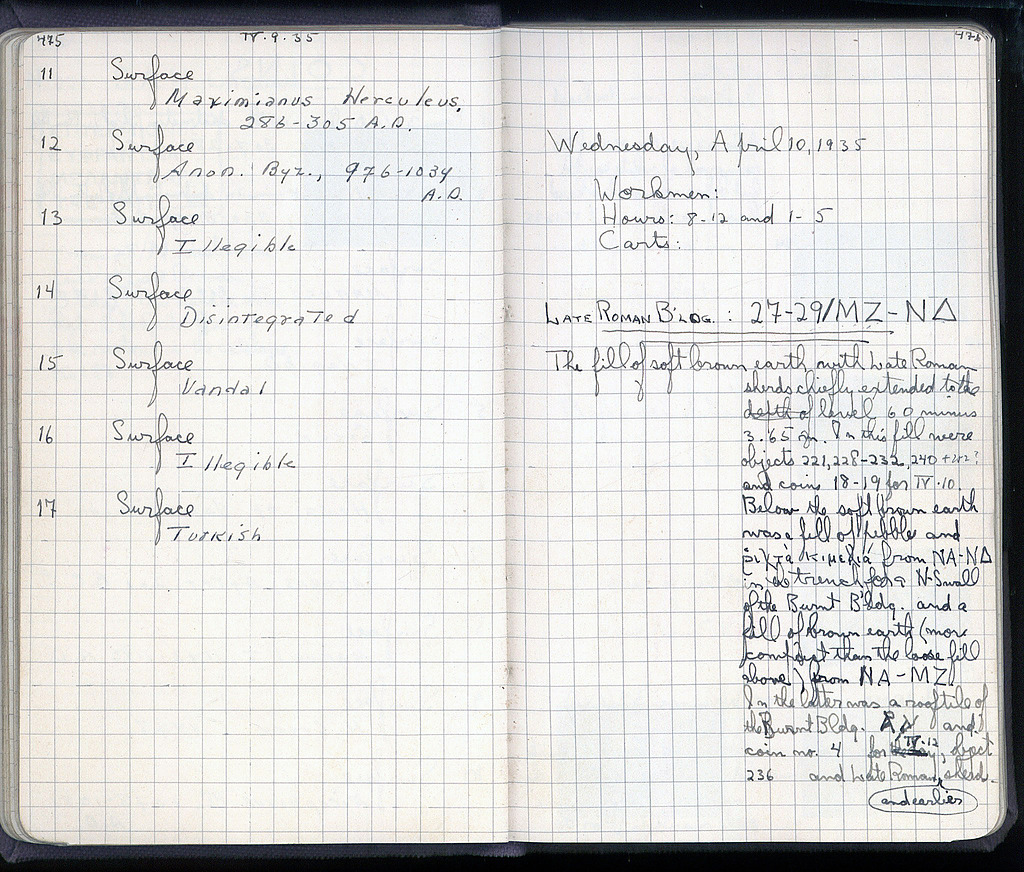 475
IV.9.35
11 Surface
Maximianus Herculeus,
286-305 A.D.
12 Surface
Anon. Byz., 976-1034
A.D.
13 Surface
Illegible
14 Surface
Disintegrated
15 Surface
Vandal
16 Surface
Illegible
17 Surface
Turkish
476
Wednesday, April 10, 1935
Workmen:
Hours: 8-12 and 1-5
Carts:
LATE ROMAN B'LDG. : 27-29/MZ-NΔ
The fill of soft brown earth with Late Roman
sherds chiefly extended to the
depth of level 60 minus
3.65 m. In this fill were
objects 221, 228-232, 240 + 242?
and coins 18-19 for IV.10.
Below the soft brown earth
was a fill of pebble and
from NA-NΔ
in a trench for a N-S wall
of the Burnt B'ldg. and a
fill of brown earth (more
compact than the loose fill
above) from NA-MZ.
In the latter was a rooftile of
the Burnt Bldg. and
coin no. 4 for IV.12, object
236 and Late Roman sherds.
and earlier